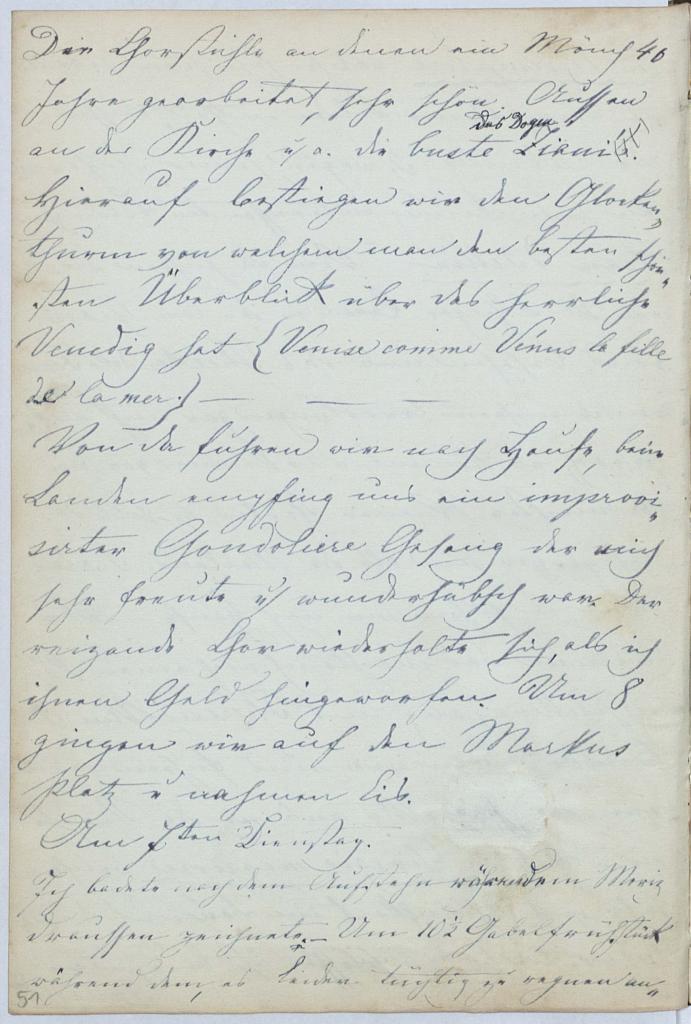 Die Chorstühle an denen ein Mönch 40
Jahre gearbeitet, sehr schön. Aussen
des Dogen
an der Kirche u. a. die buste Ziani's.
Hierauf bestiegen wir den Glocken„
thurm von welchem man den besten schön„
sten Überblick über das herrliche
Venedig hat (Venise comme Vénus la fille
de la mer.) — — —
Von da fuhren wir nach Hause, beim
Landen empfing uns ein improvi„
sirter Gondoliere Gesang der mich
sehr freute u. wunderhübsch war. Der
reizende Chor wiederholte sich, als ich
ihnen Geld hingeworfen. Um 8
gingen wir auf den Markus
Platz u nahmen Eis.
Am 7ten Dienstag.
Ich badete nach dem Aufstehn währenddem Moriz
draussen zeichnete. — Um 10½ Gabelfrühstück
während dem, es leider tüchtig zu regnen an„
51